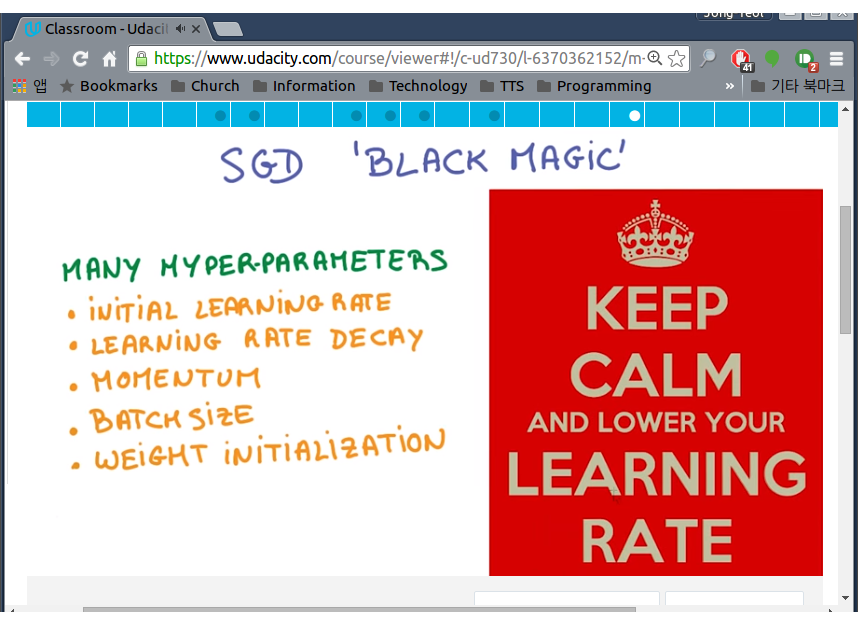 Jong Yeol
Classroom - Udacit
https://www.udacity.com/course/viewer#!/c-ud730/l-6370362152/m-
41
2
앱 Bookmarks Church Information Technology TTS Programming » 기타 북마크
SGD 'BLACK MAGIC'
MANY HYPER-PARAMETERS
• INITIAL LEARNING RATE
• LEARNING RATE DECAY
• MOMENTUM
• BATCH SIZE
• WEIGHT INITIALIZATION
KEEP
CALM
AND LOWER YOUR
LEARNING
RATE